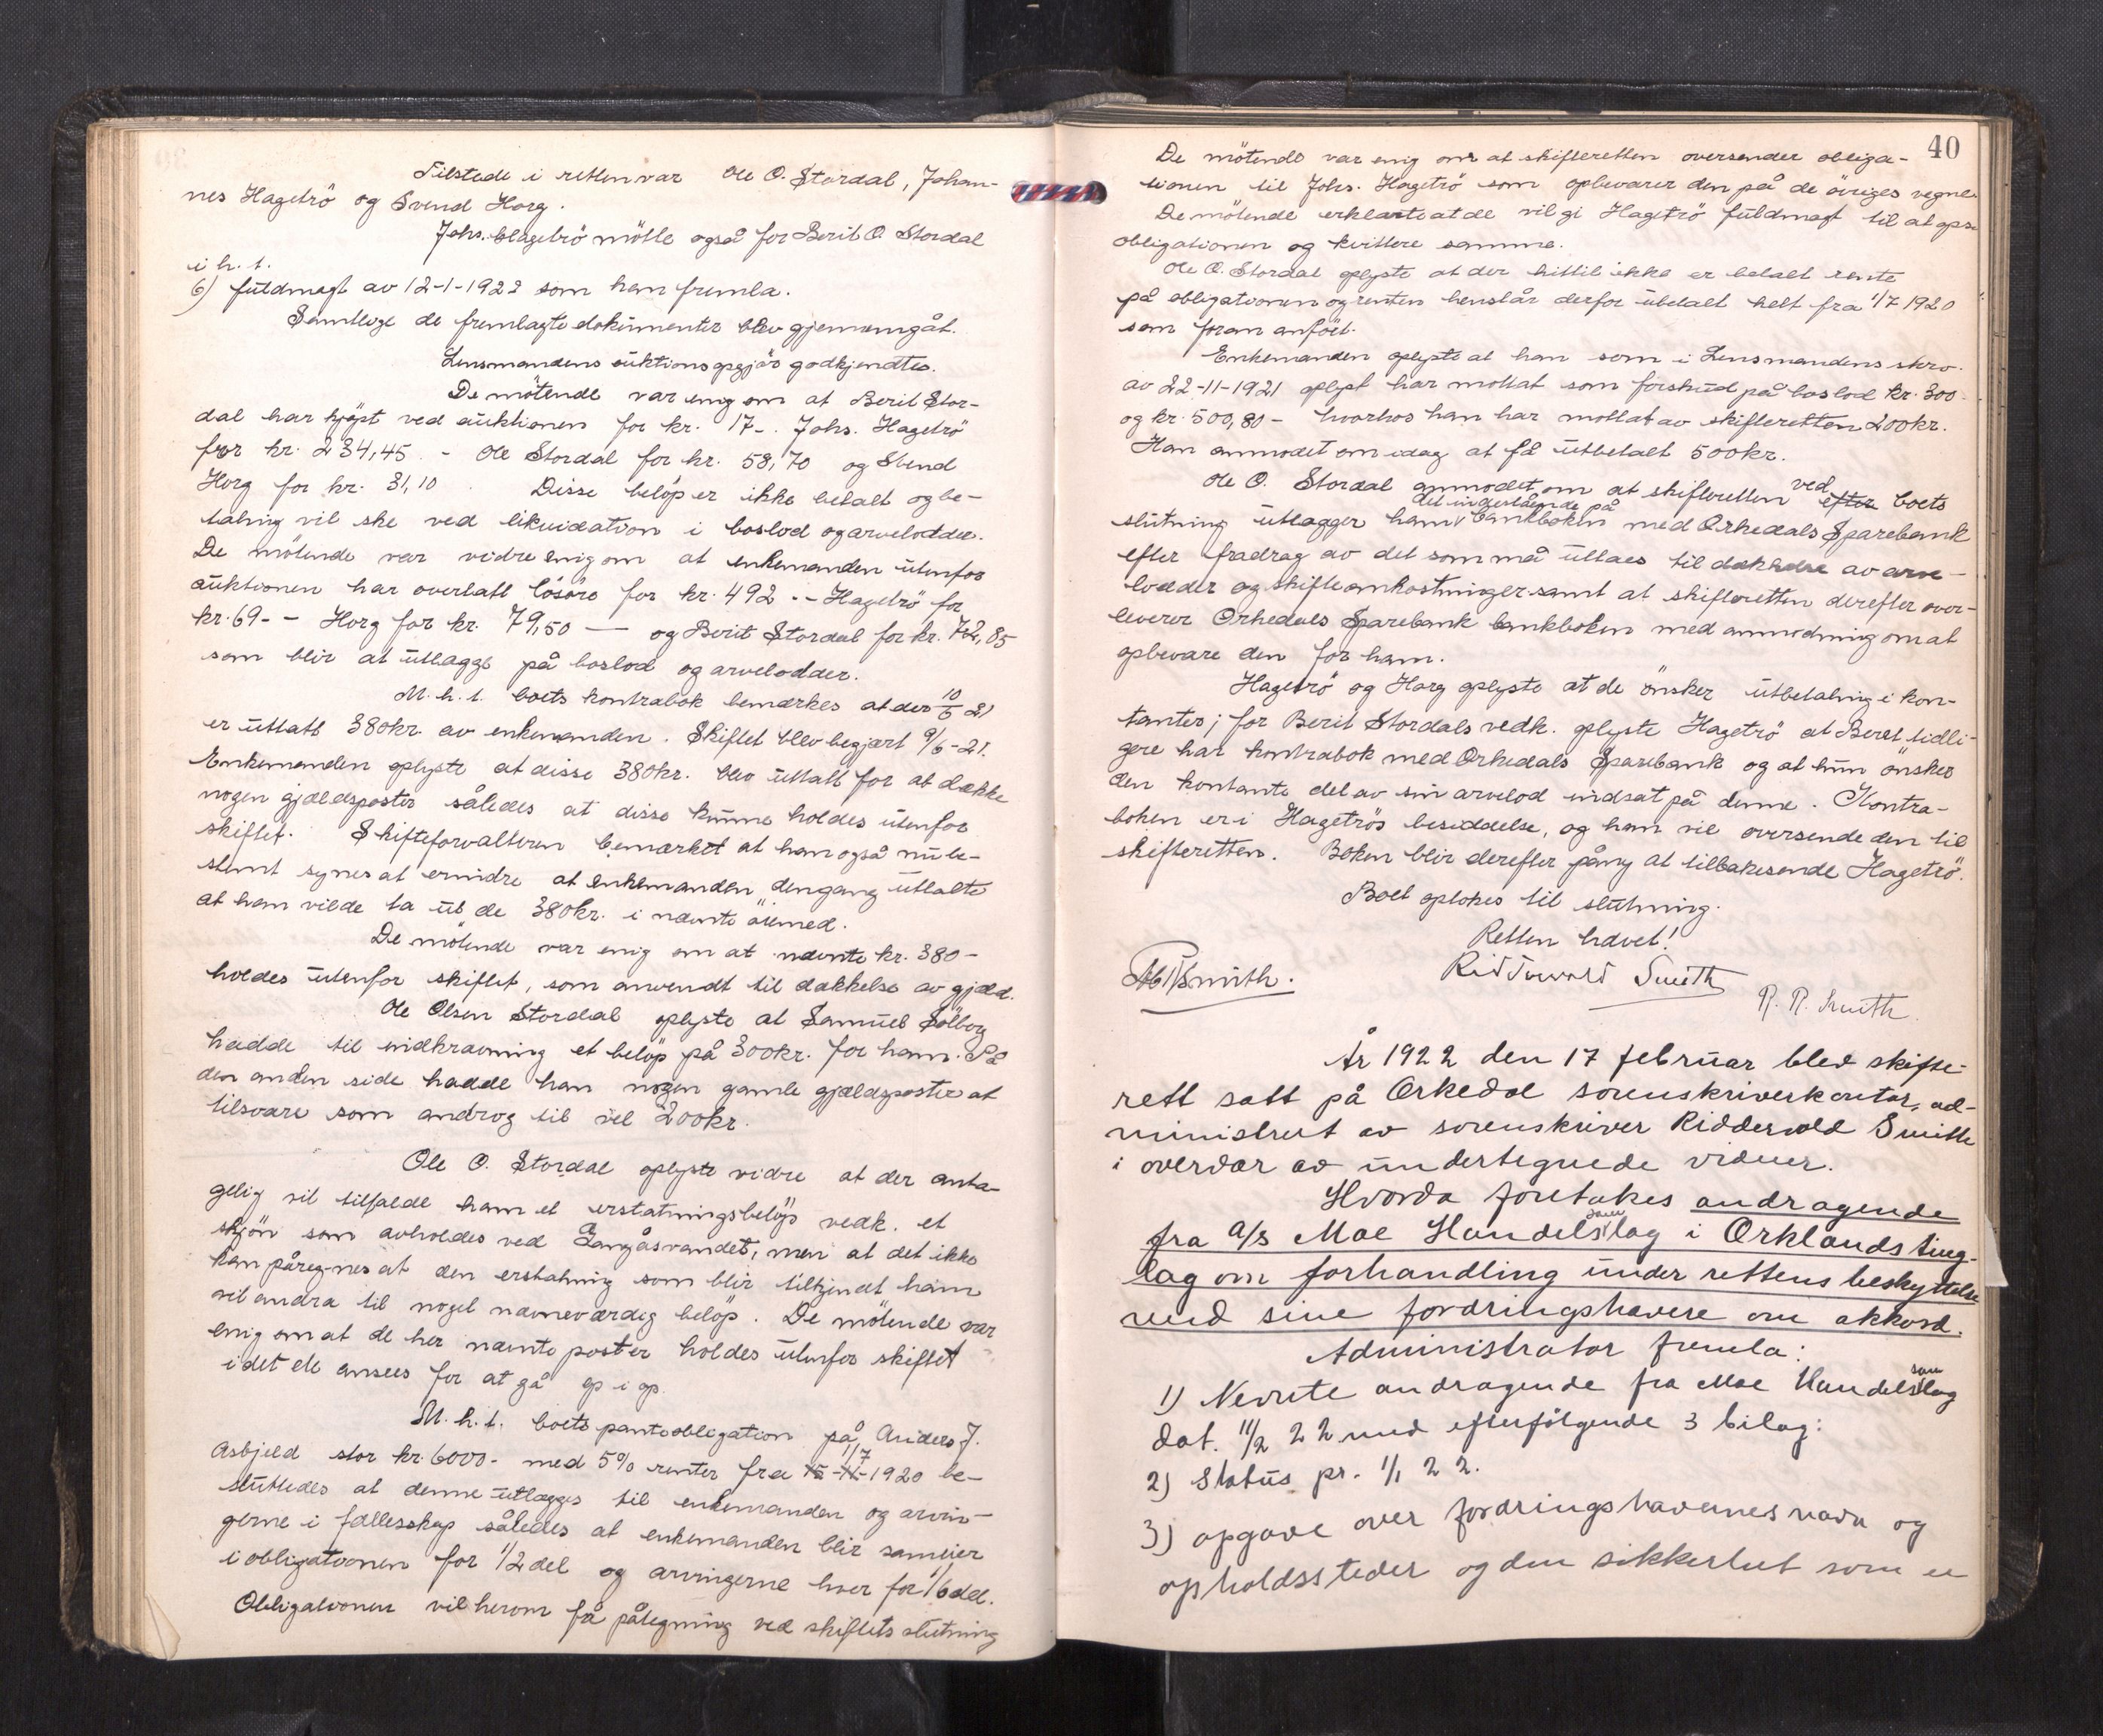 Tilstede i retten var Ole O. Stordal, Johan-
nes Hagetrö og Svend Horg.
Johs. Hagetrö mötte også for Berit O. Stordal
i h. t.
6) fuldmagt av 12-1-1922 som han fremla.
Samtlige de fremlagte dokumenter blev gjennemgåt.
Lensmandens auktionsopgjör godkjendtes.
De mötende var enig om at Berit Stor-
dal har kjöpt ved auktionen for kr. 17-. Johs. Hagetrö
for kr. 234,45. - Ole Stordal for kr. 58,70 og Svend
Horg for kr. 31,10. Disse belöp er ikke betalt og be-
taling vil ske ved likvidation i boslod og arvelodder.
De mötende var vidre enig om at enkemanden utenfor
auktionen har overtatt lösöre for kr. 492 -- Hagetrö for
kr. 69- - Horg for kr. 79,50 — og Berit Stordal for kr. 762,85
som blir at utlægge på boslod og arvelodder.
M. h. t. boets kontrabok bemærkes at der 10/6 21
er uttatt 380kr. av enkemanden. Skiftet blev begjært 9/6-21.
Enkemanden oplyste at disse 380kr. blev uttatt for at dække
nogen gjældsposter således at disse kunne holdes utenfor
skiftet. Skifteforvalteren bemerket at han også nu be-
stemt synes at erindre at enkemanden dengang uttalte
at han vilde ta ut de 380kr. i nævnte öiemed.
De mötende var enig om at nævnte kr. 380-
holdes utenfor skiftet, som anvendt til dækkelse av gjæld.
Ole Olsen Stordal oplyste at Samuel Solberg
hadde til indkrævning et belöp på 300kr. for ham. På
den anden side hadde han nogen gamle gjældsposter at
tilsvare som androg til vel 200kr.
Ole O. Stordal oplyste vidre at der anta-
gelig vil tilfalde ham et erstatningsbelöp vedk. et
skjön som avholdes ved Langåsvandet, men at det ikke
kan påregnes at den erstatning som blir tilkjendt ham
vil andra til noget nævneværdig belöp. De mötende var
enig om at de her nævnte poster holdes utenfor skiftet
idet de ansees for at gå op i op.
M. h. t. boets panteobligation på Anders J.
Asbjeld stor kr. 6000.- med 5% renter fra 1/7 1920 be-
sluttedes at denne utlægges til enkemanden og arvin-
gerne i fællesskap således at enkemanden blir sameier
i obligationen for 1/2 del og arvingerne hver for 1/6 del.
Obligationen vil herom få påtegning ved skiftets slutning
40
De mötende var enig om at skifteretten oversender obliga-
tionen til Johs. Hagetrö som opbevarer den på de övriges vegne.
De mötende erklærte at de vil gi Hagetrö fuldmagt til at opsi
obligationen og kvittere samme.
Ole O. Stordal oplyste at der hittil ikke er betalt rente
på obligationen og renten henstår derfor ubetalt helt fra 1/7 1920
som foran anfört.
Enkemanden oplyste at han som i Lensmandens skrv.
av 22-11-1921 oplyst har mottat som forskud på boslod kr. 300
og kr. 500,80 - hvorhos han har mottat av skifteretten 200kr.
Han anmodet om idag at få utbetalt 500kr.
Ole O. Stordal anmodet om at skifteretten ved efter boets
slutning utlægger ham det indestående på bankboken med Orkedals Sparebank
efter fradrag av det som må uttaes til dækkelse av arve-
lodder og skifteomkostninger samt at skifteretten derefter over-
leverer Orkedals Sparebank bankboken med anmodning om at
opbevare den for ham.
Hagetrö og Horg oplyste at de önsker utbetaling i kon-
tanter; for Berit Stordals vedk. oplyste Hagetrö at Berit tidli-
gere har kontrabok med Orkedals Sparebank og at hun önsker
den kontante del av sin arvelod indsat på denne. Kontra-
boken er i Hagetrös besiddelse, og han vil oversende den til
skifteretten. Boken blir derefter påny at tilbakesende Hagetrö.
Boet optokes til slutning.
Retten hævet!
Ridderwold Smith
Smith.
R. R. Smith.
År 1922 den 17 februar blev skifte-
rett satt på Orkedal sorenskriverkontor, ad-
ministrert av sorenskriver Ridderwold Smith
i overvær av undertegnede vidner.
Hvorda foretokes andragende
fra A/s Moe Handelssamlag i Orklands ting-
lag om forhandling under rettens beskyttelse
med sine fordringshavere om akkord.
Administrator fremla:
1) Nevnte andragende fra Moe Handelssamlag
dat. 11/2 22 med efterfölgende 3 bilag:
2) Status pr. 1/1 22.
3) opgave over fordringshavernes navn og
opholdssteder og den sikkerhet som er